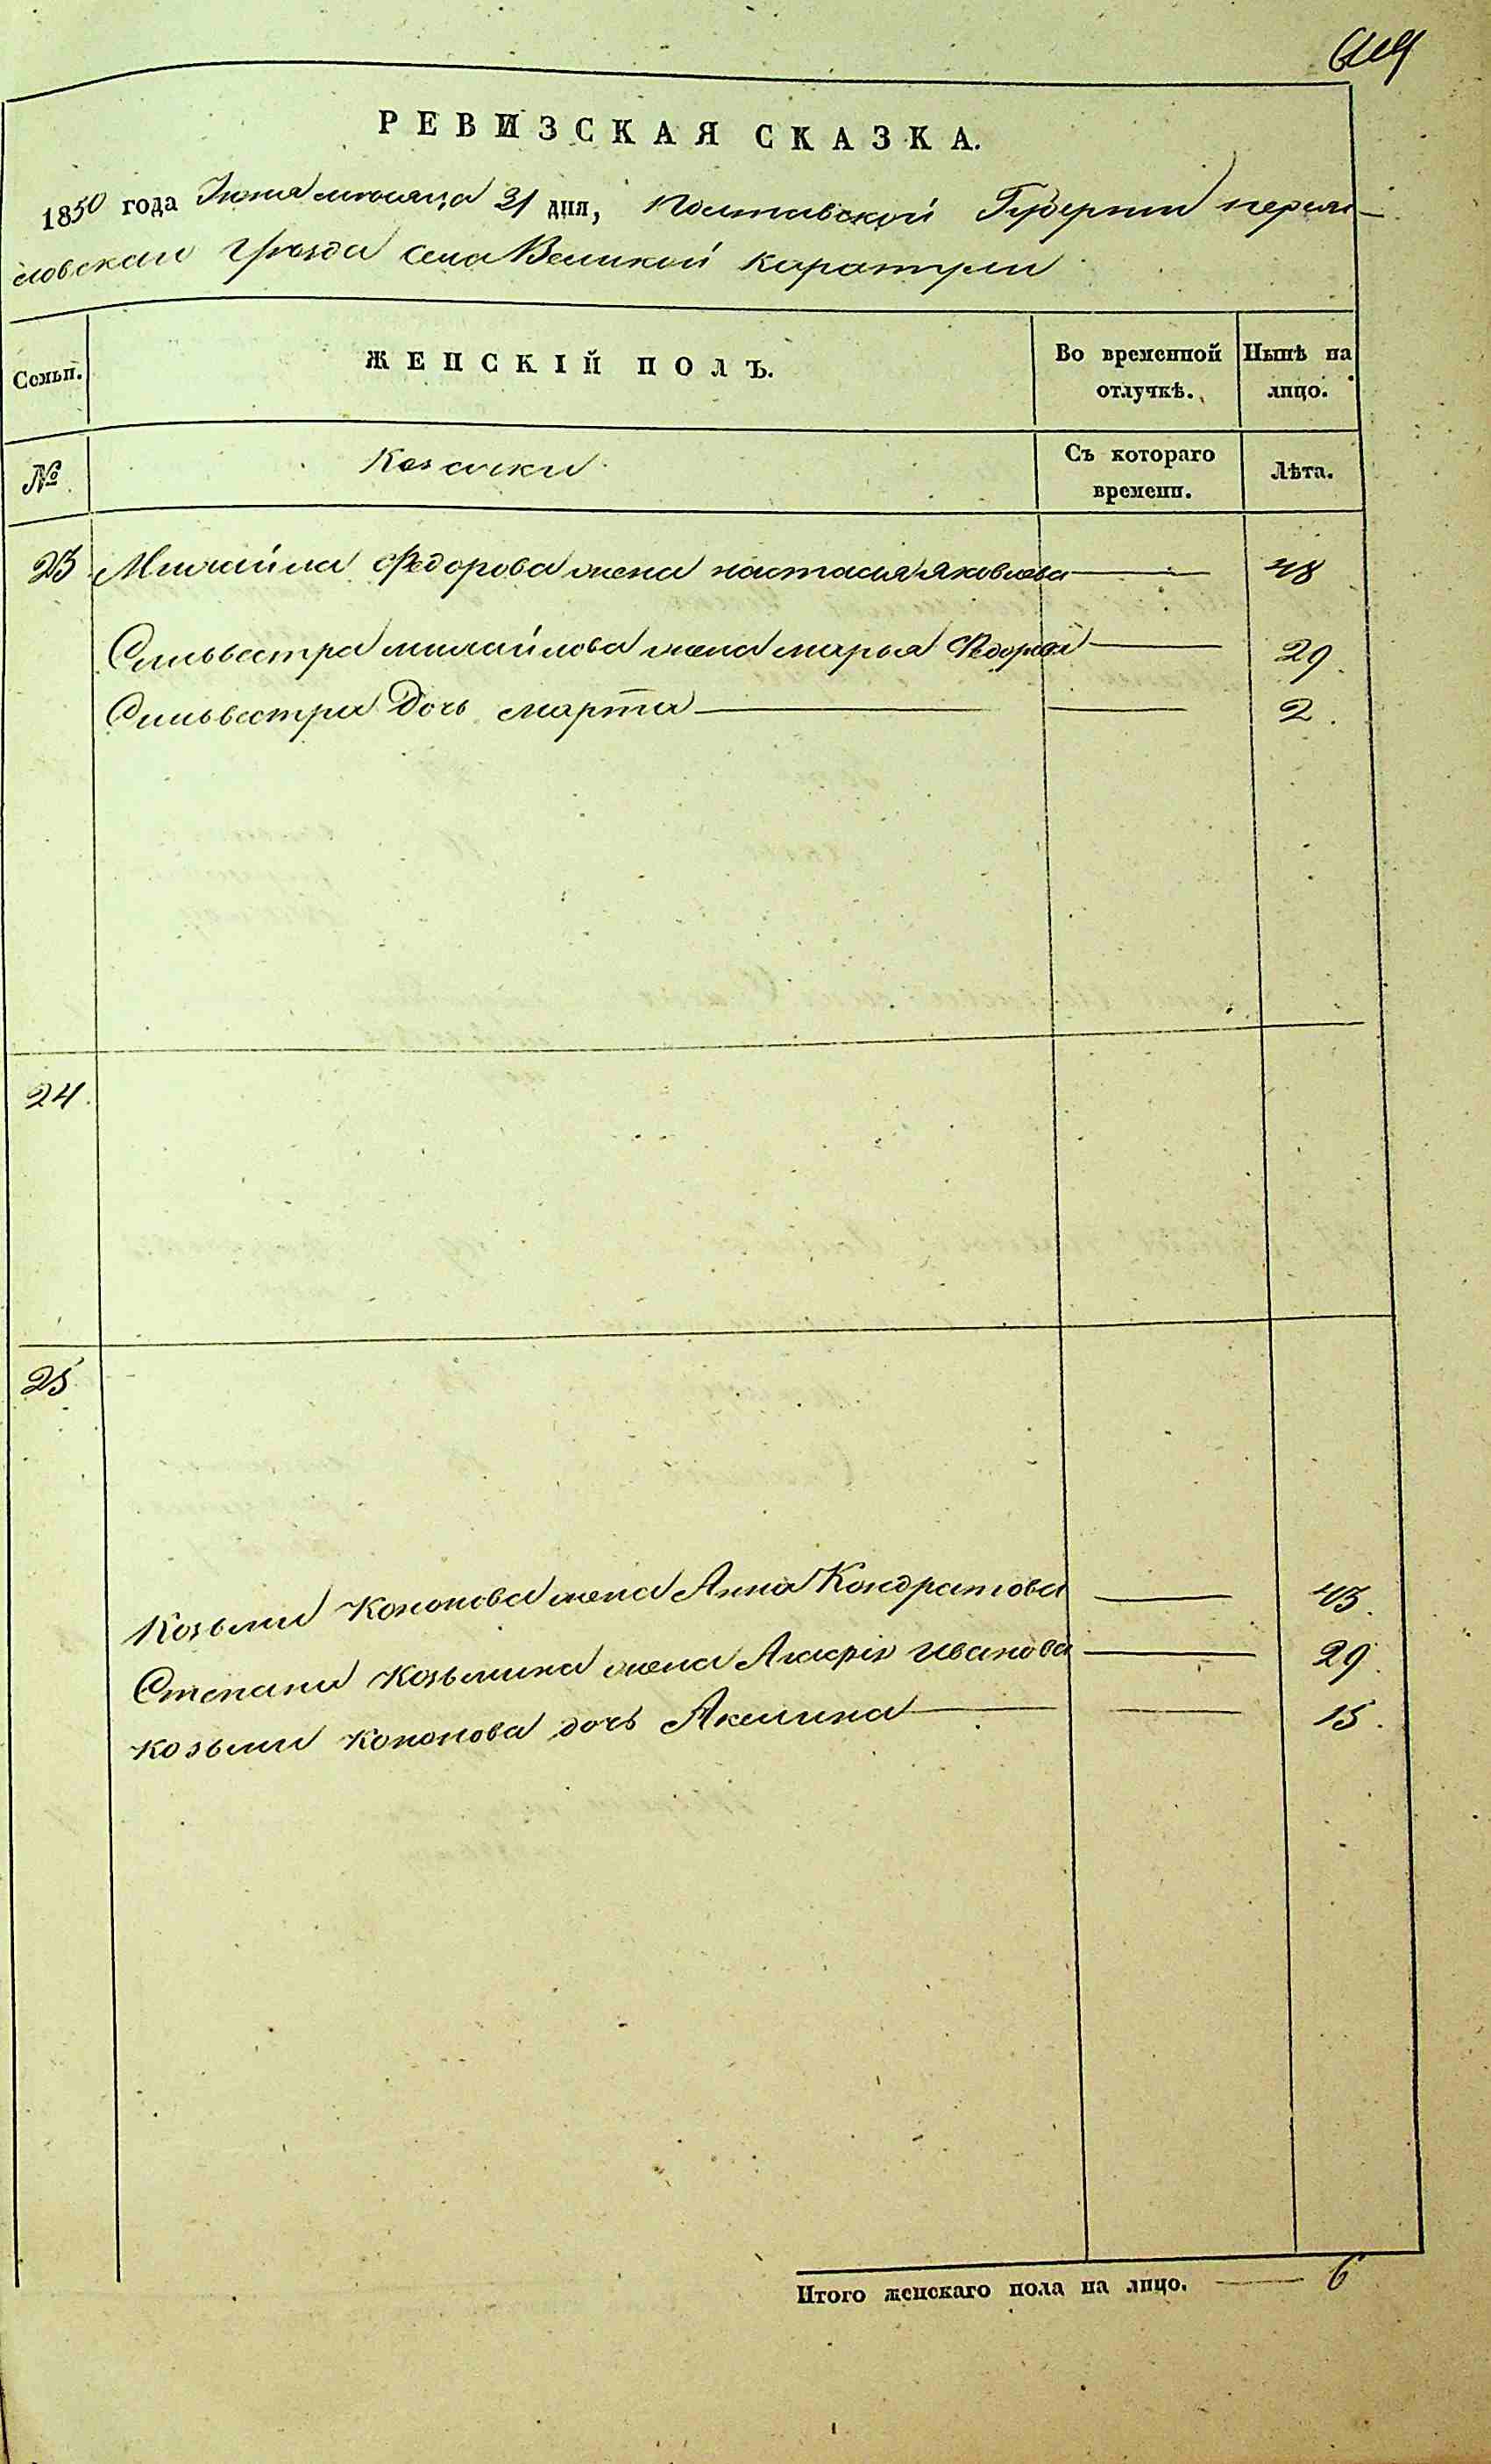 РЕВИЗСКАЯ СКАЗКА.
1850 года Июня месяца 21 дня, Полтавской Губернии переяс-
ловскаи Уезда села Великой Каратули
Семьи. ЖЕНСКІЙ ПОЛЪ. Во временной отлучкѣ. Нынѣ на лицо.
№ Козачки Съ котораго времени. Лѣта.
23 Михайла Федорова жена настасия яковлева 48
Сильвестра михайлова жена марья Федорова 29.
Сильвестра Дочь марта 2.
24.
25
Козьми Кононова жена Анна Кондратова 45.
Степана Козьмина жена Иванова 29.
козьми кононова дочь Акилина 15.
Итого женскаго пола на лицо. 6